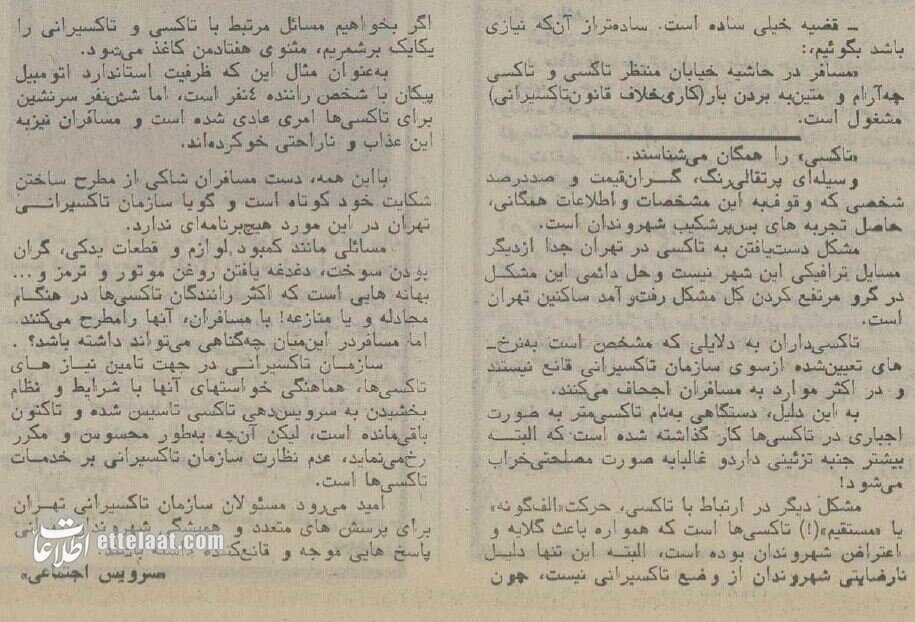 ـ قضیه خیلی ساده است. ساده‌تراز آن‌که نیازی
باشد بگوئیم،:
«مسافر در حاشیه خیابان منتظر تاکسی و تاکسی
چه‌آرام و متین‌به بردن بار(کاری‌خلاف قانون‌تاکسیرانی)
مشغول است.
«تاکسی» را همگان می‌شناسند.
وسیله‌ای پرتقالی‌رنگ، گران‌قیمت و صددرصد
شخصی که وقوف‌به این مشخصات و اطلاعات همگانی،
حاصل تجربه های بس‌پرشکیب شهروندان است.
مشکل دست‌یافتن به تاکسی در تهران جدا ازدیگر
مسایل ترافیکی این شهر نیست و حل دائمی این مشکل
در گرو مرتفع کردن کل مشکل رفت‌و آمد ساکنین تهران
است.
تاکسی‌داران به دلایلی که مشخص است به‌نرخ‌ـ
های تعیین‌شده ازسوی سازمان تاکسیرانی قانع نیستند
و در اکثر موارد به مسافران اجحاف می‌کنند.
به این دلیل، دستگاهی به‌نام تاکسی‌متر به صورت
اجباری در تاکسی‌ها کار گذاشته شده است که البته
بیشتر جنبه تزئینی داردو غالبابه صورت مصلحتی‌خراب
می‌شود!
مشکل دیگر در ارتباط با تاکسی، حرکت«الف‌گونه»
یا «مستقیم»(!) تاکسی‌ها است که همواره باعث گلایه و
اعتراض شهروندان بوده است، البته این تنها دلیل
نارضایتی شهروندان از وضع تاکسیرانی نیست، چون
اگر بخواهیم مسائل مرتبط با تاکسی و تاکسیرانی را
یکایک برشمریم، مثنوی هفتادمن کاغذ می‌شود.
به‌عنوان مثال این که ظرفیت استاندارد اتومبیل
پیکان با شخص راننده ٤نفر است، اما شش‌نفر سرنشین
برای تاکسی‌ها امری عادی شده است و مسافران نیزبه
این عذاب و ناراحتی خوکرده‌اند.
بااین همه، دست مسافران شاکی از مطرح ساختن
شکایت خود کوتاه است و گویا سازمان تاکسیرانی
تهران در این مورد هیچ‌برنامه‌ای ندارد.
مسائلی مانند کمبود لوازم و قطعات یدکی، گران
بودن سوخت، دغدغه یافتن روغن موتور و ترمز و...
بهانه هایی است که اکثر رانندگان تاکسی‌ها در هنگام
مجادله و یا منازعه! با مسافران، آنها رامطرح می‌کنند
اما مسافردر این‌میان چه‌گناهی می‌تواند داشته باشد؟ .
سازمان تاکسیرانی در جهت تامین نیاز های
تاکسی‌ها، هماهنگی خواستهای آنها با شرایط و نظام
بخشیدن به سرویس‌دهی تاکسی تاسیس شده و تاکنون
باقی‌مانده است، لیکن آن‌چه به‌طور محسوس و مکرر
رخ‌می‌نماید، عدم نظارت سازمان تاکسیرانی بر خدمات
تاکسی‌ها است.
امید می‌رود مسئولان سازمان تاکسیرانی تهران
برای پرسش های متعدد و همیشگی شهروندان
پاسخ هایی موجه و قانع‌کننده داشته باشند.
«سرویس اجتماعی»
اطلاعات
ettelaat.com